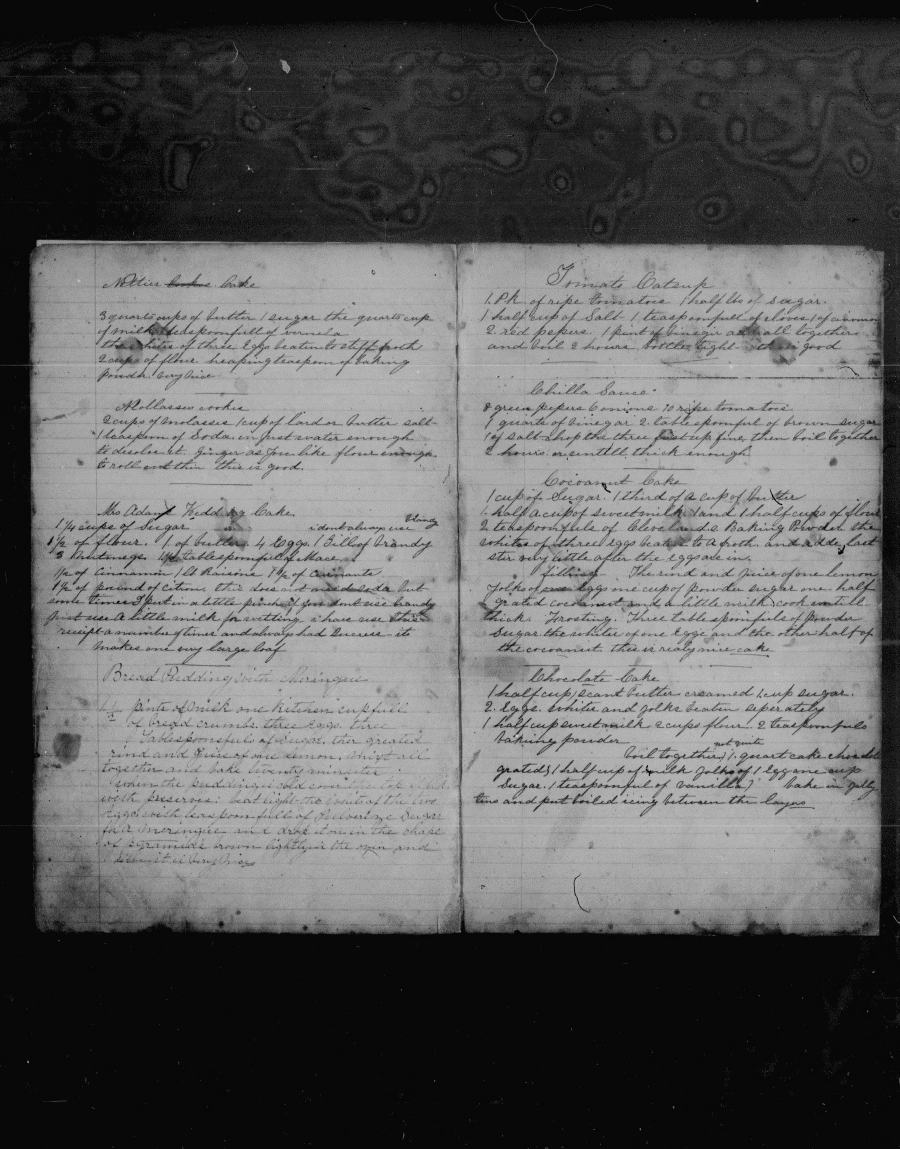 Netties Cookies Cake
3 quarts cup of butter 1 sugar the quarts cup
of milk 1 teaspoonfull of vernela
the whites of three Eggs beaten to stiff froth
2 cups of flour heaping teaspoon of baking
powder very nice
Mollasses cookies
2 cups of molasses 1 cup of lard or butter salt
1 teaspoon of Soda in just water enough
to desolve it. Ginger as you like flour enough
to roll out thin this is good.
Mrs Adams Wedding Cake.
1 1/4 cups of Sugar i dont always use Brandy
1 1/2 of flour. 1 of butter. 4 Eggs. 1 Gill of brandy
3 Nutmegs. tablespoonful of Mace
1/2 of cinnamon 1 lb Raisins 1 1/2 of currants
1 1/2 of pound of citron this does not need soda but
some times I put in a little pinch if you dont use brandy
just use a little milk for wetting i have use this
receipt a number of times and always had Success it
makes one very large loaf
Bread Pudding with Meringue
1/2 pint of milk one kitchen cup full
of bread crumbs. three Eggs. three
Tablespoonsfuls of Sugar. the greated
rind and Juice of one lemon, whipt all
together and bake twenty minutes
when the pudding is cold cover the top
with preserves: beat light the whits of the two
eggs with teaspoonfull of Pulverize Sugar
for a meringue and drop it on in the shape
of pyramids brown lightly in the oven and
serve it is very nice
Tomato Catsup
1. Pk. of ripe tomatoes 1 half lb of sugar.
1 half cup of Salt 1 teaspoonfull of cloves 1 of cinnamon
2 red pepers. 1 pint of vinegir all together
and boil 2 hours bottle tight this is good
Chilla Sauce
8 green pepers 6 onions 10 ripe tomatoes
1 quarte of vinegar 2 tablespoonful of brown sugar
1 of salt chop the three first up fine, then boil together
2 hours or untill thick enough
Cocoanut Cake
1 cup of Sugar. 1 third of a cup of butter
1. half a cup of sweet milk 1 and 1 half cups of flour
2 teaspoonfuls of Clevelands Baking Powder the
whites of three eggs beat to a froth and added last
ster very little after the eggs are in.
Filling The rind and juice of one lemon
Yolks of eggs one cup of powder sugar one half
grated cocoanut and a little milk cook untill
thick. Frosting. Three tablespoonfuls of powder
Sugar the white of one Egge and the other half of
the cocoanut this is realy nice cake
Chocolate Cake
1 half cup scant butter creamed 1 cup sugar.
2. Eggs. white and yolks beaten seperately
1 half cup sweet milk 2 cups flour. 2 teaspoonfuls
bakeing powder not quite
boil together 1. quart cake
grated 1 half cup of milk yolks of 1 egg one cup
Sugar. 1 teaspoonful of vanilla bake in Jelly
tins and put boiled icing between the layers